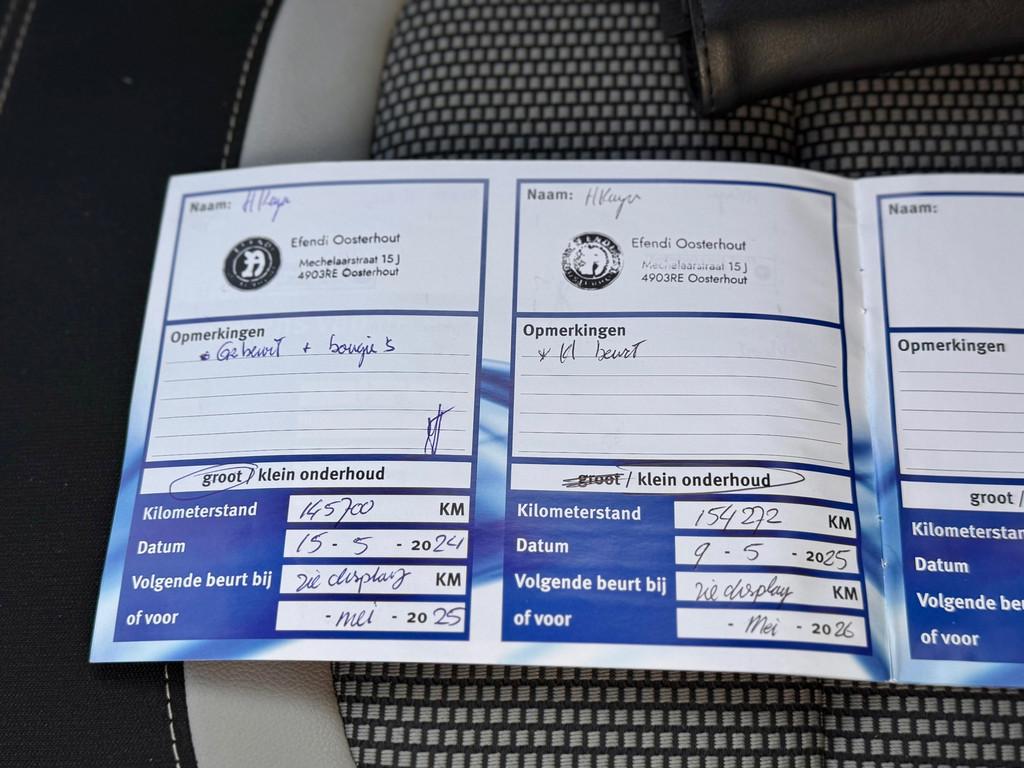 Naam: HKuyr
EFENDI
Efendi Oosterhout
Mechelaarstraat 15 J
4903RE Oosterhout
Opmerkingen
* Gr beurt + bougie's
groot / klein onderhoud
Kilometerstand 145700 KM
Datum 15 - 5 - 2024
Volgende beurt bij zie display KM
of voor - mei - 2025
Naam: HKuyr
Efendi Oosterhout
Mechelaarstraat 15 J
4903RE Oosterhout
Opmerkingen
* Kl beurt
groot / klein onderhoud
Kilometerstand 154272 KM
Datum 9 - 5 - 2025
Volgende beurt bij zie display KM
of voor - Mei - 2026
Naam:
Opmerkingen
groot /
Kilometerstan
Datum
Volgende beu
of voor